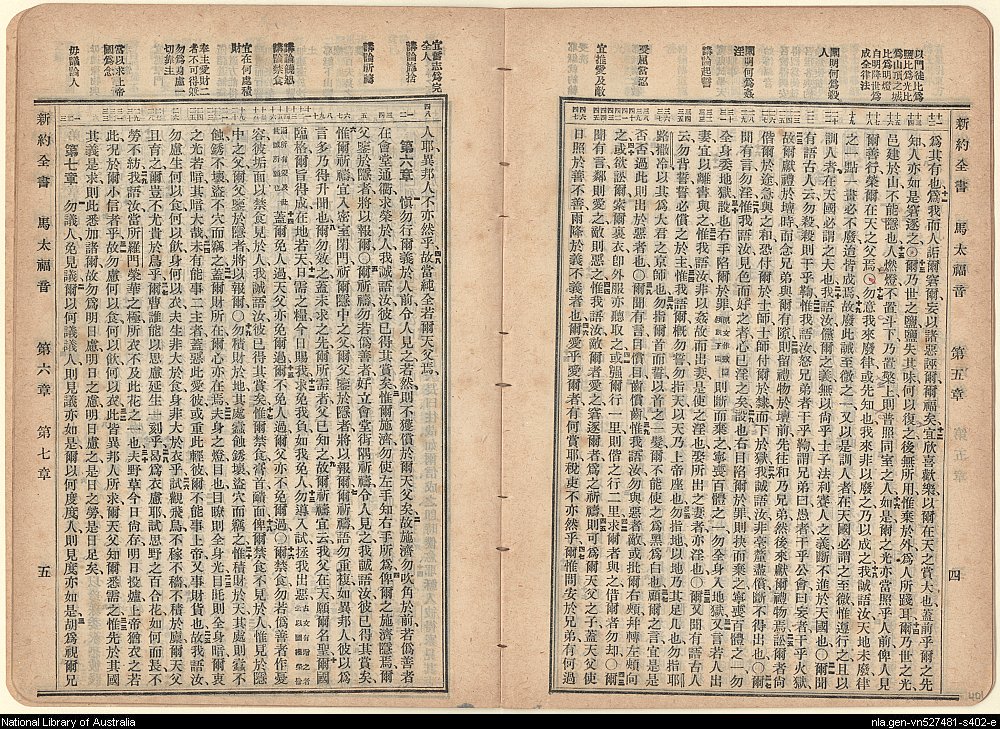 新約全書 馬太福音 第五章 四
以門徒比爲
爲山頂之城
爲明燈
自明降世爲
成全律法
闡明何爲殺
人
闡明何爲姦
淫
講論起誓
受屈當忍
宜推愛及敵
爲其有也、爲我而人詬爾窘爾妄以諸惡誣爾、爾福矣、宜欣喜歡樂、以爾在天之賞大也、蓋前乎爾之先
知、人亦如是窘逐之、○爾乃世之鹽、鹽失其味、何以復之、後無所用、惟棄於外、爲人所踐耳、爾乃世之光、
邑建於山、不能隱也、人燃燈不置斗下、乃置檠上、則普照同室之人、如是爾之光亦當照乎人前、俾人見
爾善行、榮爾在天之父焉、○勿意我來廢律或先知也、我來非以廢之、乃以成之、我誠語汝、天地未廢、律
之一點一畫必不廢、迨皆成焉、故廢此誡至微之一、又以是訓人者、在天國必謂之至微、惟遵行之、且以
訓人者、在天國必謂之大也、我語汝、儻爾之義、無以尚乎士子法利賽人之義、斷不進於天國也、○爾聞
有語古人云、勿殺、殺則干乎鞫、惟我語汝、怒兄弟者干乎鞫、謂兄弟曰愚者、干乎公會、曰妄者、干乎火獄、
故爾獻禮於壇時、而念兄弟與爾有隙、則留禮物於壇前、先往和乃兄弟、然後來獻爾禮物焉、訟爾者尚
偕爾於途、急與之和、恐付爾於士師、士師付爾於隸、而下於獄、我誠語汝、非毫釐盡償、斷不得出也、○爾
聞有言勿淫、惟我語汝、見色而好之者、心已淫之矣、設也右目陷爾於罪、則抉而棄之、寧喪百體之一、勿
全身委地獄、設也右手陷爾於罪、則斷而棄之、寧喪百體之一、勿全身入地獄、又言若人出
妻、宜以離書與之、惟我語汝、非以姦故而出妻、是使之淫也、娶所出之妻者、亦淫也、○爾又聞有語古人
云、勿背誓、誓必償之於主、惟我語爾、概勿誓、勿指天、以天乃上帝座也、勿指地、以地乃其足几也、勿指耶
路撒冷、以其爲大君之京師也、勿指爾首而誓、以首之一髮、爾不能使之爲黑爲白也、爾言宜是是
否否、過此則出於惡者也、○爾聞有言、目償目、齒償齒、惟我語汝、勿與惡者敵、或批爾右頰、并轉左頰向
之、或欲訟爾索爾裏衣、卽外服亦聽取之、或強爾行一里、則偕之行二里、求爾者與之、借爾者勿却、○爾
聞有言、鄰則愛之、敵則惡之、惟我語汝、敵爾者愛之、窘逐爾者爲之祈禱、則可爲爾天父之子、蓋天父使
日照於善不善、雨濡於義不義者也、爾愛乎愛爾者、有何賞耶、稅吏不亦然乎、爾惟問安於兄弟、有何過
宜奮志爲完
全人
講論施捨
講論祈禱
講論禁食
宜在何處積
財
奉主愛財二
者不可得兼
勿爲身慮一
切靠主
當以求上帝
國爲念
毋議論人
人耶、異邦人不亦然乎、故當純全、若爾天父焉、
第六章 愼勿行爾義於人前、令人見之、若然、則不獲償於爾天父矣、故施濟勿吹角於前、若僞善者
在會堂通衢求榮於人、我誠語汝、彼已得其賞矣、惟爾施濟、勿使左手知右手所爲、俾爾之施濟隱焉、爾
父鑒於隱者、將以報爾、○爾祈禱、勿若僞善者、好立會堂街隅祈禱令人見之、我誠語汝、彼已得其賞矣、
惟爾祈禱、宜入密室、閉門祈爾隱中之父、爾父鑒於隱者、將以報爾、爾祈禱、語勿重複、如異邦人、彼以爲
言多乃得升聞也、爾勿效之、蓋未求之先、爾所需者、父已知之、故爾祈禱宜云、我父在天、願爾名聖、爾國
臨格、爾旨得成、在地若天、日需之糧、今日賜我、求免我負、如我免人、勿導入試、拯我出惡、
蓋爾免人過、天父亦免爾過、爾不免人過、父亦不免爾過、○爾禁食、勿若僞善者作憂
容、彼垢面以禁食見於人、我誠語汝、彼已得其賞矣、惟爾禁食、膏首靧面、俾爾禁食不見於人、惟見於隱
中之父、爾父鑒於隱者、將以報爾、○勿積財於地、其處蠹蝕銹壞、盜穴而竊之、惟積財於天、其處則蠹不
蝕、銹不壞、盜不穴而竊之、蓋爾財所在、爾心亦在焉、夫身之燈目也、目瞭則全身光、目眊則全身暗、爾衷
之光若暗、其暗大哉、未有能事二主者、蓋惡此愛彼、或重此輕彼、爾不能事上帝、又事財貨也、故我語汝、
勿慮生何以食、何以飲、身何以衣、夫生非大於食、身非大於衣乎、試觀飛鳥、不稼不穡、不積於廩、爾天父
且育之、爾豈不尤貴於鳥乎、爾曹誰能以思慮延生一刻乎、曷爲衣慮耶、試思野之百合花、如何而長、不
勞不紡、我語汝、當所羅門榮華之極、所衣不及此花之一也、夫野草今日尚存、明日投爐、上帝猶衣之若
此、況於爾小信者乎、故勿慮何以食、何以飲、何以衣、此皆異邦人所求、爾天父知爾悉需之、惟先於其國
其義是求、則此悉加諸爾、故勿爲明日慮、明日之慮、是日之勞、是日足矣、
第七章 勿議人、免見議、爾以何議議人、則見議亦如是、爾以何度度人、則見度亦如是、胡爲視爾兄
新約全書 馬太福音 第六章 第七章 五
National Library of Australia
nla.gen-vn527481-s402-e